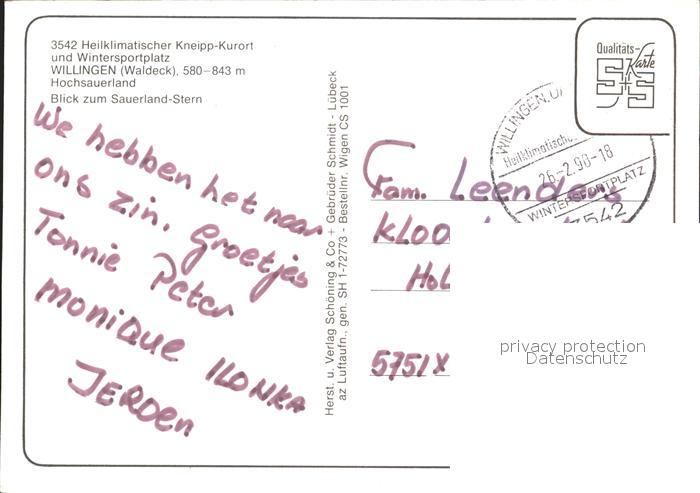 3542 Heilklimatischer Kneipp-Kurort
und Wintersportplatz
WILLINGEN (Waldeck), 580–843 m
Hochsauerland
Blick zum Sauerland-Stern
We hebben het naar
ons zin. Groetjes
Tonnie Peter
Monique ILONKA
JEROen
Herst. u. Verlag Schöning & Co + Gebrüder Schmidt - Lübeck
az Luftaufn., gen. SH 1-72773 - Bestellnr. Wigen CS 1001
Qualitäts-
Karte
S+S
WILLINGEN, U
Heilklimatisch
26.-2.90-18
WINTERSPORTPLATZ
3542
Fam. Leenders
KLOO
Hol
5751X
privacy protection
Datenschutz